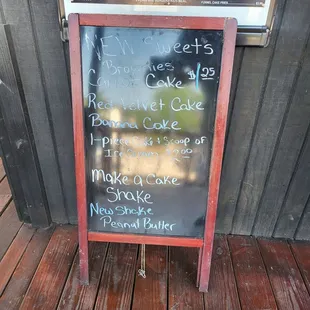 NEW Sweets
Brownies
Cake $1.25
Red Velvet Cake
Banana Cake
1-piece & 1 Scoop of
Ice Cream
Make a Cake
Shake
New Shake
Peanut Butter